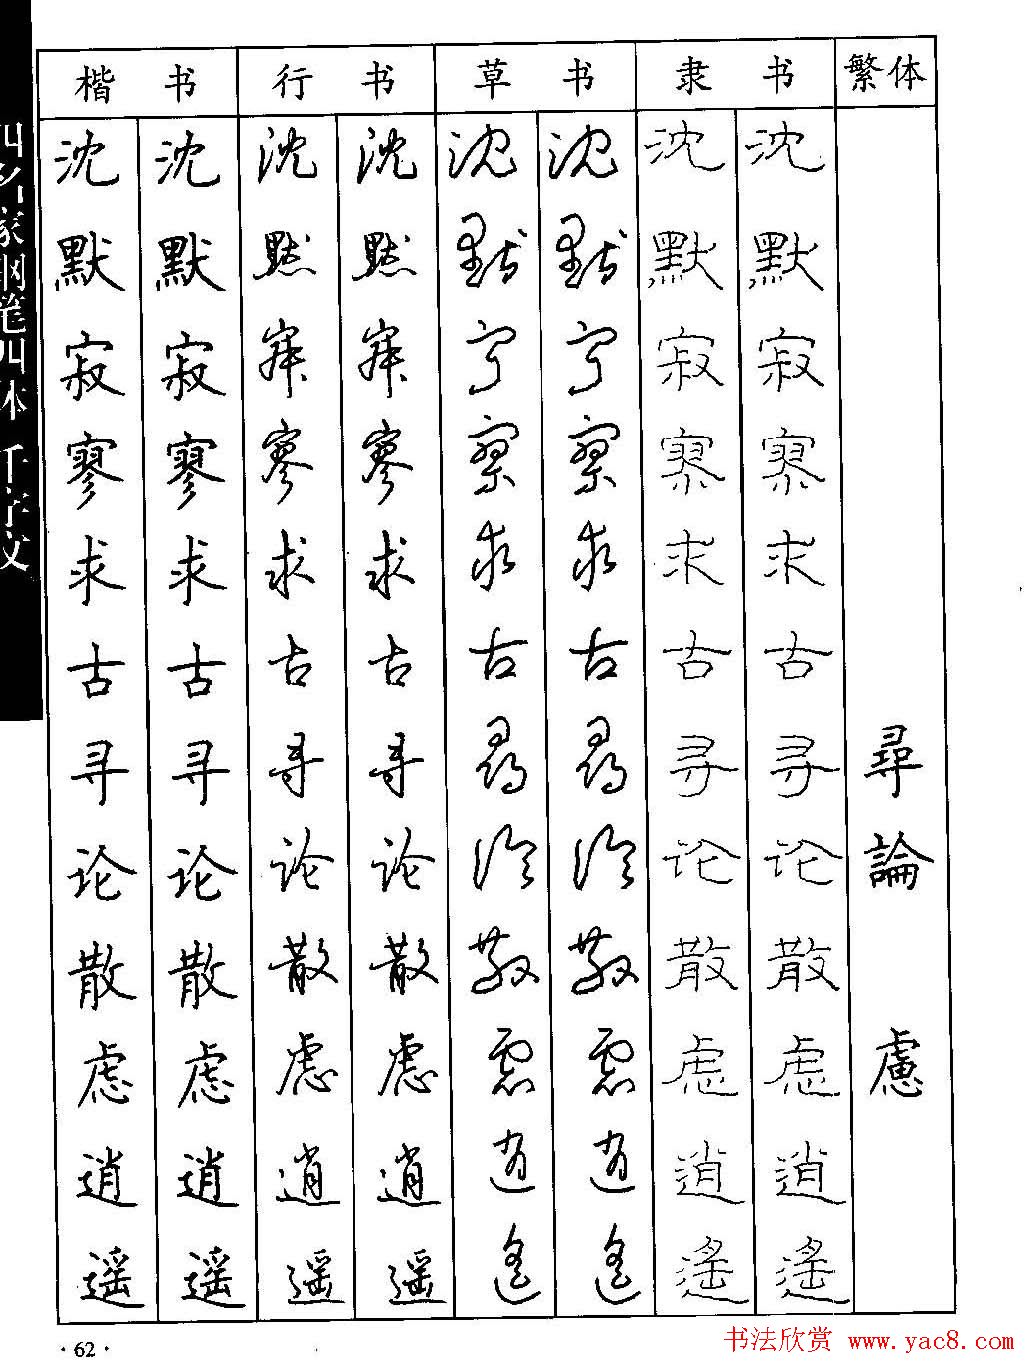 四名家钢笔四体 千字文
楷 书 行 书 草 书 隶 书 繁体
沈 沈 沈 沈 沈 沈 沈 沈
默 默 默 默 默 默 默 默
寂 寂 寂 寂 寂 寂 寂 寂
寥 寥 寥 寥 寥 寥 寥 寥
求 求 求 求 求 求 求 求
古 古 古 古 古 古 古 古
寻 寻 寻 寻 寻 寻 寻 寻 尋
论 论 论 论 论 论 论 论 論
散 散 散 散 散 散 散 散
虑 虑 虑 虑 虑 虑 虑 虑 慮
逍 逍 逍 逍 逍 逍 逍 逍
遥 遥 遥 遥 遥 遥 遥 遥
· 62 ·
书法欣赏 www.yac8.com